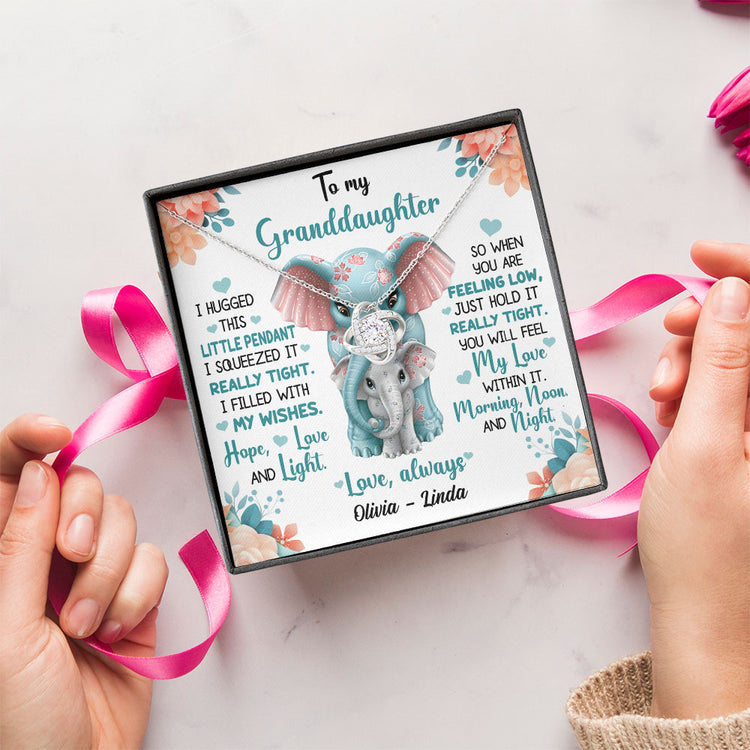 To my
Granddaughter
I HUGGED
THIS
LITTLE PENDANT
I SQUEEZED IT
REALLY TIGHT.
I FILLED WITH
MY WISHES.
Hope, Love
AND Light.
SO WHEN
YOU ARE
FEELING LOW,
JUST HOLD IT
REALLY TIGHT.
YOU WILL FEEL
My Love
WITHIN IT.
Morning, Noon,
AND Night.
Love, always
Olivia - Linda